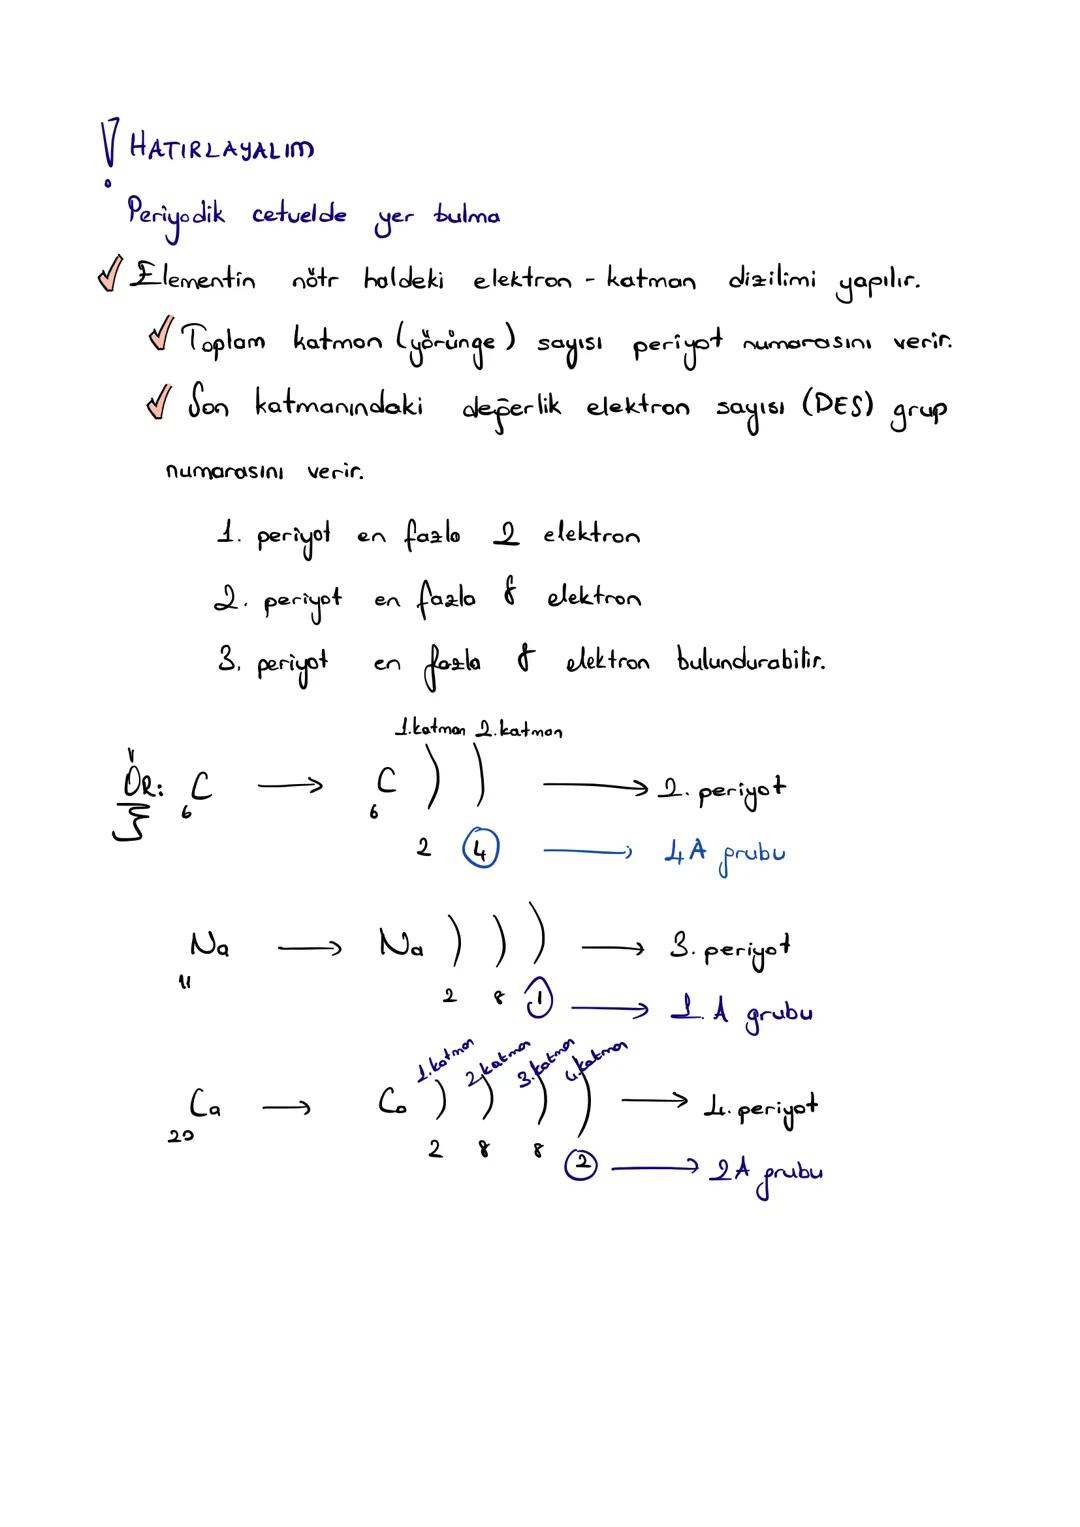 ! HATIRLAYALIM
Periyodik cetvelde yer bulma
✓ Elementin nötr haldeki elektron - katman dizilimi yapılır.
✓ Toplam katman (yörünge) sayısı periyot numarasını verir.
✓ Son katmanındaki değerlik elektron sayısı (DES) grup
numarasını verir.
1. periyot en fazla 2 elektron
2. periyot en fazla 8 elektron
3. periyot en fazla 8 elektron bulundurabilir.
1.katman 2.katman
ÖR: C → C ) ) → 2. periyot
6 6
2 4 → 4A grubu
Na → Na ) ) ) → 3. periyot
11
2 8 1 → 1.A grubu
1.katman 2.katman 3.katman 4.katman
Ca → Ca ) ) ) ) → 4. periyot
20
2 8 8 2 → 2A grubu